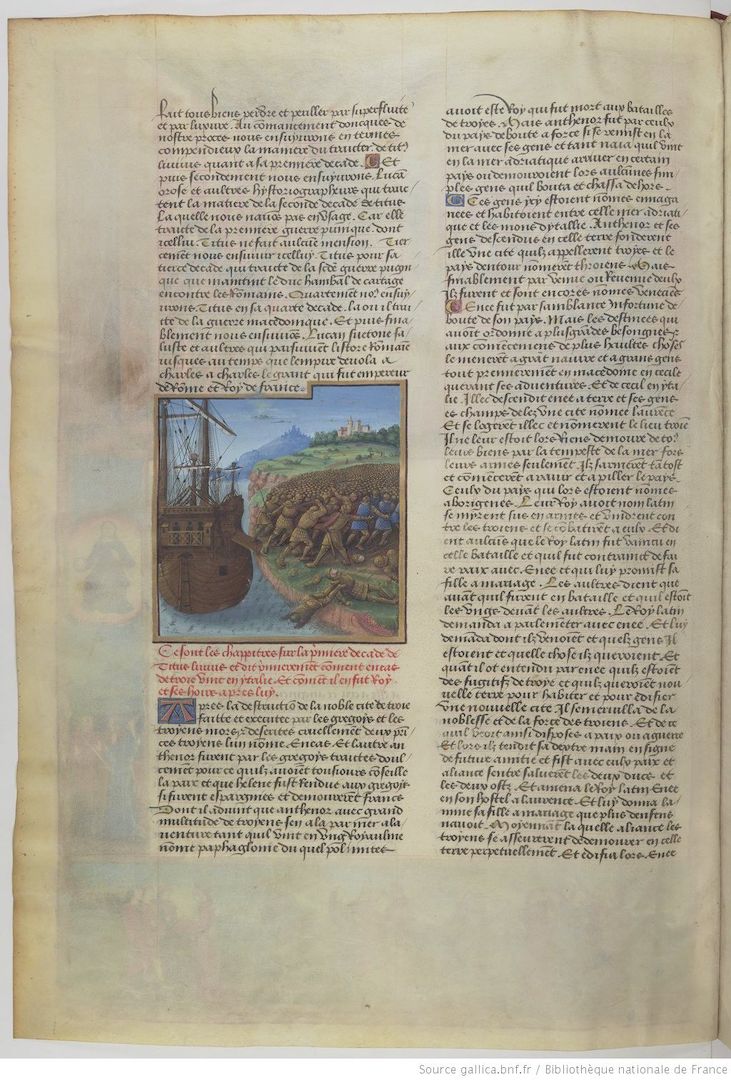 fait tous biens perdre et periller par superfluite
et par luxure. Au cōmancement doncques de
nostre proces nous ensuyurons en termes
compendieux la maniere du traicter de tit9
liuius quant a sa premiere decade. Et
puis secondement nous ensuyurons. Lucan
orose et aultres hystoriographeurs qui traic
tent la matiere de la seconde decade de titus
La quelle nous nauōs pas en vsage. Car elle
traicte de la premiere guerre punique dont
icelluy Titus ne fait aulcune mension. Tier
cement nous ensuiuir icelluy Titus pour sa
tierce decade qui traicte de la secōde guerre pugni
que que maintint le duc hanibal de cartage
encontre les Romains. Quartement no9 ensuy
urons Titus en sa quarte decade. la ou il trai
cte de la guerre macedonique. Et puis fina
blement nous ensuiuōs. Lucan suetone sa
luste et aultres qui parsuiuent listore Romaine
iusques au temps que lempire deuola a
charles a charles le grant qui fut empereur
de Rōme et Roy de france
Ce sont les chappitres sur la pmiere decade de
Titus liuius et dit pmierement cōment eneas
de troie vint en ytalie. Et cōmēt il en fut Roy
et ses hoirs apres luy.
Apres la destructiō de la noble cite de troie
faicte et executee par les gregoys et les
troyens mors et desertes cruellement deux prī
ces troyens lun nōme. Eneas. Et lautre an
thenor furent par les gregoys traictes doul
cement pour ce quilz auoient tousiours cōseille
la paix et que helene fust rendue aux gregoys
si furent espargnies et demourerent francz
Dont il aduint que anthenor auec grand
multitude de troyens sen ala par mer a la
uenture tant quil vint en vng Royaulme
nōme paphaglonie du quel polimites
auoit este Roy qui fut mort aux batailles
de troyes. Mais anthenor fut par ceulx
du pays deboute a force si se remist en la
mer auec ses gens et tant naia quil vint
en la mer adriatique a rauer en certain
pays ou demouroient lors aulcunes sim
ples gens quil bouta et chassa dehors.
Ces gens icy estoient nōmes enuiga
nees et habitoient entre celle mer adriati
que et les mons dytallie. Anthenor et ses
gens descendus en celle terre fonderent
ille vne cite quilz appellerent troyes et le
pays dentour nōmerēt throiens. Mais
finablement par venue ou Reuenue deulx
Ilz furent et sont encores nōmes veneciēs
Enee fut par samblance Infortune de
boute de son pays. Mais les destinees qui
auoiēt ordōne a plus grādes besongnes
aux cōmēcemens de plus haultes choses
le menerēt a grāt nauire et a grans gens
tout premierement en macedōne en cecile
querant ses aduentures. Et de cecil en yta
lie Illec descendit enee a terre et ses gens
es champs de lez vne cite nōmee laurēce
Et se logerēt illec et nōmerent le lieu troiē
Il ne leur estoit lors Riens demoure de to9
leurs biens par la tempeste de la mer fors
leurs armes seulemēt. Ilz sarmerēt tātost
et cōmēcerēt a rauir et a piller le pays
Ceulx du pays qui lors estoient nōmes
aborigenes. Leur Roy auoit nom latin
se myrent sus en armes et vindrent con
tre les troiens et se cōbatirēt a eulx. Et di
ent aulcuns que le Roy latin fut vaincu en
celle bataille et quil fut contraint de fai
re paix auec. Enee et qui luy promist sa
fille a mariage. Les aultres dient que
auant quil furent en bataille et quil estoiēt
les vngs deuāt les aultres. Le Roy latin
demanda a parlementer auec enee. Et luy
demāda dont ilz venoiēt et quelz gens Il
estoient et quelle chose ilz queroient. Et
quāt il ot entendu par enee quilz estoiēt
des fugitifz de troye et quilz queroiēt nou
uelle terre pour habiter et pour edifier
vne nouuelle cite. Il semerueilla de la
noblesse et de la force des troiens. Et de ce
quil veoit ainsi disposes a paix ou a guerre
Et lors ilz tendit sa dextre main en signe
de future amitie et fist auec eulx paix et
aliance sentre saluerēt les deux ducs et
les deux ostz. Et amena le Roy latin Enee
en son hostel a laurence. Et luy donna la
mine sa fille a mariage que plus denfens
nauoit. Moyennāt la quelle aliance les
troyens se asseurerent de demourer en celle
terre perpetuellemēt. Et edifia lors. Enee
Source gallica.bnf.fr / Bibliothèque nationale de France